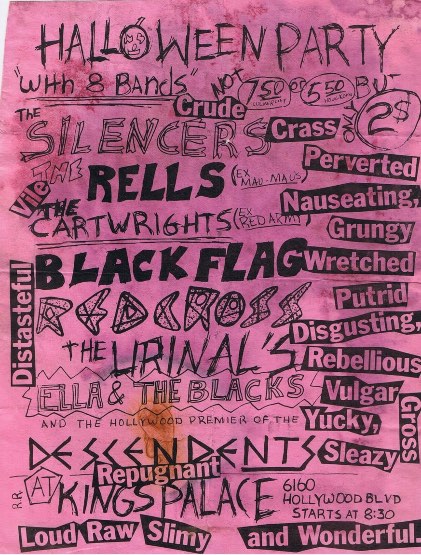 HALLOWEEN PARTY
"WITH 8 BANDS" NOT 7.50 OR 5.50 BUT
ONLY 2$
Crude
THE SILENCERS
Crass
Perverted
Vile
THE RELLS (EX MAU-MAUS)
Nauseating,
THE CARTWRIGHTS (EX RED ARMY)
Grungy
BLACK FLAG
Wretched
Distasteful
RED CROSS
Putrid
Disgusting,
THE URINAL'S
Rebellious
ELLA & THE BLACKS
Vulgar
AND THE HOLLYWOOD PREMIER OF THE
Yucky,
Gross
DESCENDENTS
Sleazy
Repugnant
R.R. AT KINGS PALACE
6160
HOLLYWOOD BLVD
STARTS AT 8:30
Loud Raw Slimy and Wonderful.